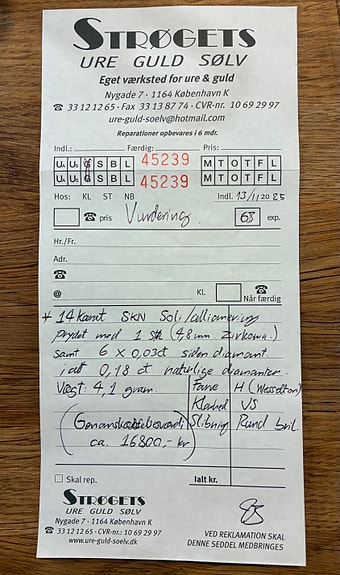 STRØGETS
URE GULD SØLV
Eget værksted for ure & guld
Nygade 7 · 1164 København K
☎ 33 12 12 65 · Fax 33 13 87 74 · CVR-nr. 10 69 29 97
ure-guld-soelv@hotmail.com
Reparationer opbevares i 6 mdr.
Indl.: Færdig: Pris:
S B L 45239 M T O T F L
S B L 45239 M T O T F L
Hos: KL ST NB Indl. 13/11 2025
☎ pris Vurdering 68 exp.
Hr./Fr.
Adr.
☎
@ Kl. ☎ Når færdig
14 karat SKN Sol./alliancering
Prydet med 1 stk (4,8mm Zirkonia.)
samt 6 x 0,03ct siden diamant
i alt 0,18 ct naturlige diamanter.
Vægt: 4,1 gram. Farve H (Wesselton)
Klarhed VS
(Genanskaffelsesværdi Slibning Rund bril.
ca. 16800,- kr)
Skal rep. Ialt kr.
STRØGETS
URE GULD SØLV
Nygade 7 · 1164 København K
☎ 33 12 12 65 · CVR-nr.: 10 69 29 97
www.ure-guld-soelv.dk
VED REKLAMATION SKAL
DENNE SEDDEL MEDBRINGES